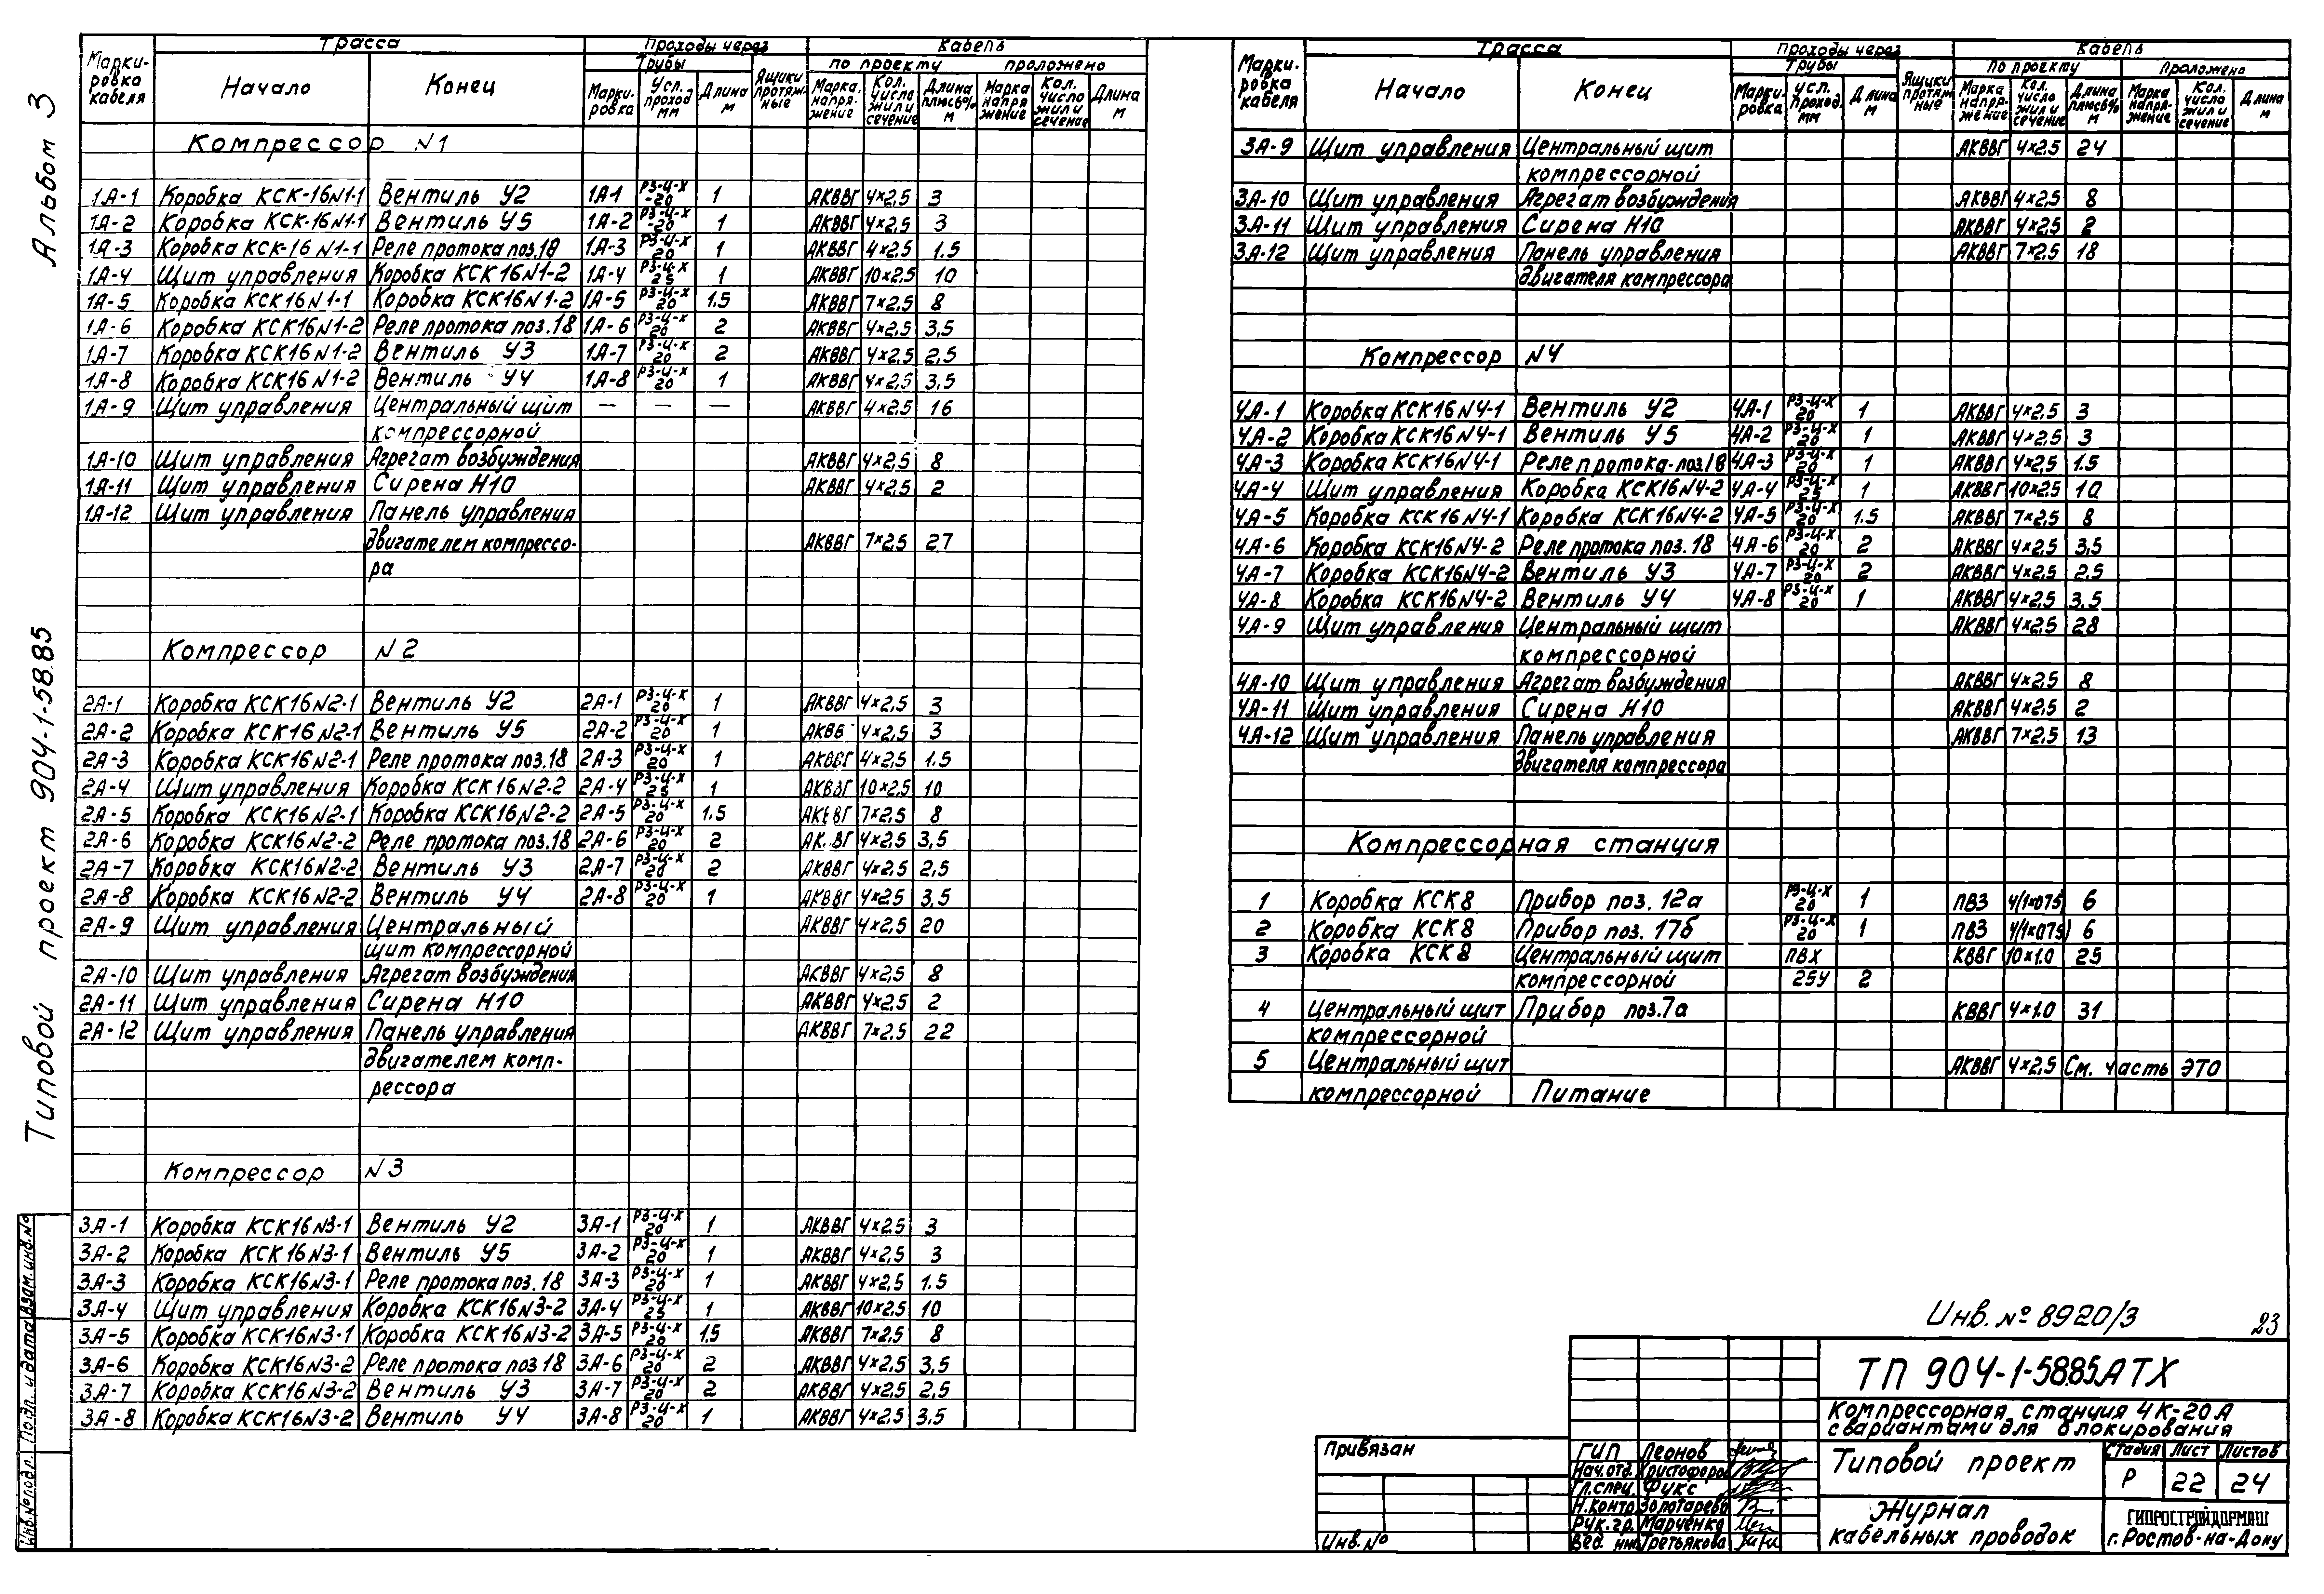 Альбом 3
Типовой проект 904-1-58.85
Марки-ровка кабеля | Трасса | Проходы через | Кабель
Начало | Конец | Трубы | Ящики протяж-ные | по проекту | проложено
Марки-ровка | Усл. проход мм | Длина м | Марка, напря-жение | Кол. число жил и сечение | Длина плюс6% м | Марка напря-жение | Кол. число жил и сечение | Длина м
Компрессор N1
1А-1 Коробка КСК-16N1-1 Вентиль У2 1А1 РЗ-Ц-Х -20 1 АКВВГ 4×2,5 3
1А-2 Коробка КСК-16N1-1 Вентиль У5 1А-2 РЗ-Ц-Х -20 1 АКВВГ 4×2,5 3
1А-3 Коробка КСК-16 N1-1 Реле протока поз.18 1А-3 РЗ-Ц-Х 20 1 АКВВГ 4×2,5 1.5
1А-4 Щит управления Коробка КСК16N1-2 1А-4 РЗ-Ц-Х 25 1 АКВВГ 10×2.5 10
1А-5 Коробка КСК16N1-1 Коробка КСК16N1-2 1А-5 РЗ-Ц-Х 20 1.5 АКВВГ 7×2.5 8
1А-6 Коробка КСК16N1-2 Реле протока поз.18 1А-6 РЗ-Ц-Х 20 2 АКВВГ 4×2,5 3,5
1А-7 Коробка КСК16N1-2 Вентиль У3 1А-7 РЗ-Ц-Х 20 2 АКВВГ 4×2,5 2,5
1А-8 Коробка КСК16N1-2 Вентиль У4 1А-8 РЗ-Ц-Х 20 1 АКВВГ 4×2,5 3,5
1А-9 Щит управления Центральный щит — — — АКВВГ 4×2,5 16
компрессорной
1А-10 Щит управления Агрегат возбуждения АКВВГ 4×2,5 8
1А-11 Щит управления Сирена Н10 АКВВГ 4×2,5 2
1А-12 Щит управления Панель управления
двигателем компрессо- АКВВГ 7×2,5 27
ра
Компрессор N2
2А-1 Коробка КСК16N2-1 Вентиль У2 2А-1 РЗ-Ц-Х 20 1 АКВВГ 4×2,5 3
2А-2 Коробка КСК16N2-1 Вентиль У5 2А-2 РЗ-Ц-Х 20 1 АКВВ 4×2,5 3
2А-3 Коробка КСК16N2-1 Реле протока поз.18 2А-3 РЗ-Ц-Х 20 1 АКВВГ 4×2,5 1.5
2А-4 Щит управления Коробка КСК16N2-2 2А-4 РЗ-Ц-Х 25 1 АКВВГ 10×2,5 10
2А-5 Коробка КСК16N2-1 Коробка КСК16N2-2 2А-5 РЗ-Ц-Х 20 1.5 АКВВГ 7×2,5 8
2А-6 Коробка КСК16N2-2 Реле протока поз.18 2А-6 РЗ-Ц-Х 20 2 АКВВГ 4×2,5 3,5
2А-7 Коробка КСК16N2-2 Вентиль У3 2А-7 РЗ-Ц-Х 20 2 АКВВГ 4×2,5 2,5
2А-8 Коробка КСК16N2-2 Вентиль У4 2А-8 РЗ-Ц-Х 20 1 АКВВГ 4×2,5 3,5
2А-9 Щит управления Центральный АКВВГ 4×2,5 20
щит компрессорной
2А-10 Щит управления Агрегат возбуждения АКВВГ 4×2,5 8
2А-11 Щит управления Сирена Н10 АКВВГ 4×2,5 2
2А-12 Щит управления Панель управления АКВВГ 7×2,5 22
двигателем комп-
рессора
Компрессор N3
3А-1 Коробка КСК16N3-1 Вентиль У2 3А-1 РЗ-Ц-Х 20 1 АКВВГ 4×2,5 3
3А-2 Коробка КСК16N3-1 Вентиль У5 3А-2 РЗ-Ц-Х 20 1 АКВВГ 4×2,5 3
3А-3 Коробка КСК16N3-1 Реле протока поз.18 3А-3 РЗ-Ц-Х 20 1 АКВВГ 4×2,5 1.5
3А-4 Щит управления Коробка КСК16N3-2 3А-4 РЗ-Ц-Х 25 1 АКВВГ 10×2,5 10
3А-5 Коробка КСК16N3-1 Коробка КСК16N3-2 3А-5 РЗ-Ц-Х 20 1.5 АКВВГ 7×2,5 8
3А-6 Коробка КСК16N3-2 Реле протока поз 18 3А-6 РЗ-Ц-Х 20 2 АКВВГ 4×2,5 3,5
3А-7 Коробка КСК16N3-2 Вентиль У3 3А-7 РЗ-Ц-Х 20 2 АКВВГ 4×2,5 2,5
3А-8 Коробка КСК16N3-2 Вентиль У4 3А-8 РЗ-Ц-Х 20 1 АКВВГ 4×2,5 3.5
Марки-ровка кабеля | Трасса | Проходы через | Кабель
Начало | Конец | Трубы | Ящики протяж-ные | По проекту | Проложено
Марки-ровка | Усл. проход. мм | Длина м | Марка напря-жение | Кол. число жил и сечение | Длина плюс6% м | Марка напря-жение | Кол. число жил и сечение | Длина м
3А-9 Щит управления Центральный щит АКВВГ 4×2,5 24
компрессорной
3А-10 Щит управления Агрегат возбуждения АКВВГ 4×2,5 8
3А-11 Щит управления Сирена Н10 АКВВГ 4×2,5 2
3А-12 Щит управления Панель управления АКВВГ 7×2,5 18
двигателя компрессора
Компрессор N4
4А-1 Коробка КСК16N4-1 Вентиль У2 4А-1 РЗ-Ц-Х 20 1 АКВВГ 4×2,5 3
4А-2 Коробка КСК16N4-1 Вентиль У5 4А-2 РЗ-Ц-Х 20 1 АКВВГ 4×2,5 3
4А-3 Коробка КСК16N4-1 Реле протока-поз.18 4А-3 РЗ-Ц-Х 20 1 АКВВГ 4×2,5 1.5
4А-4 Щит управления Коробка КСК16N4-2 4А-4 РЗ-Ц-Х 25 1 АКВВГ 10×2,5 10
4А-5 Коробка КСК16N4-1 Коробка КСК16N4-2 4А-5 РЗ-Ц-Х 20 1.5 АКВВГ 7×2,5 8
4А-6 Коробка КСК16N4-2 Реле протока поз.18 4А-6 РЗ-Ц-Х 20 2 АКВВГ 4×2,5 3,5
4А-7 Коробка КСК16N4-2 Вентиль У3 4А-7 РЗ-Ц-Х 20 2 АКВВГ 4×2,5 2,5
4А-8 Коробка КСК16N4-2 Вентиль У4 4А-8 РЗ-Ц-Х 20 1 АКВВГ 4×2,5 3,5
4А-9 Щит управления Центральный щит АКВВГ 4×2,5 28
компрессорной
4А-10 Щит управления Агрегат возбуждения АКВВГ 4×2,5 8
4А-11 Щит управления Сирена Н10 АКВВГ 4×2,5 2
4А-12 Щит управления Панель управления АКВВГ 7×2,5 13
двигателя компрессора
Компрессорная станция
1 Коробка КСК8 Прибор поз. 12а РЗ-Ц-Х 20 1 ПВ3 4/1×075/ 6
2 Коробка КСК8 Прибор поз. 17б РЗ-Ц-Х 20 1 ПВ3 4/1×075/ 6
3 Коробка КСК8 Центральный щит ПВХ КВВГ 10×1.0 25
компрессорной 25У 2
4 Центральный щит Прибор поз.7а КВВГ 4×1.0 31
компрессорной
5 Центральный щит АКВВГ 4×2,5 См. часть ЭТО
компрессорной Питание
Инв. № 8920/3 23
ТП 904-1-58.85.АТХ
Компрессорная станция 4К-20А
с вариантами для блокирования
Типовой проект
Стадия Лист Листов
Р 22 24
Журнал
кабельных проводок
ГИПРОСТРОЙДОРМАШ
г. Ростов-на-Дону
Привязан
Инв. №
ГИП Леонов
Нач.отд. Христофоров
Гл.спец. Фукс
Н.контр. Золотарева
Рук.гр. Марченко
Вед. инж. Третьякова
Инв.№подл. Подп. и дата Взам.инв.№